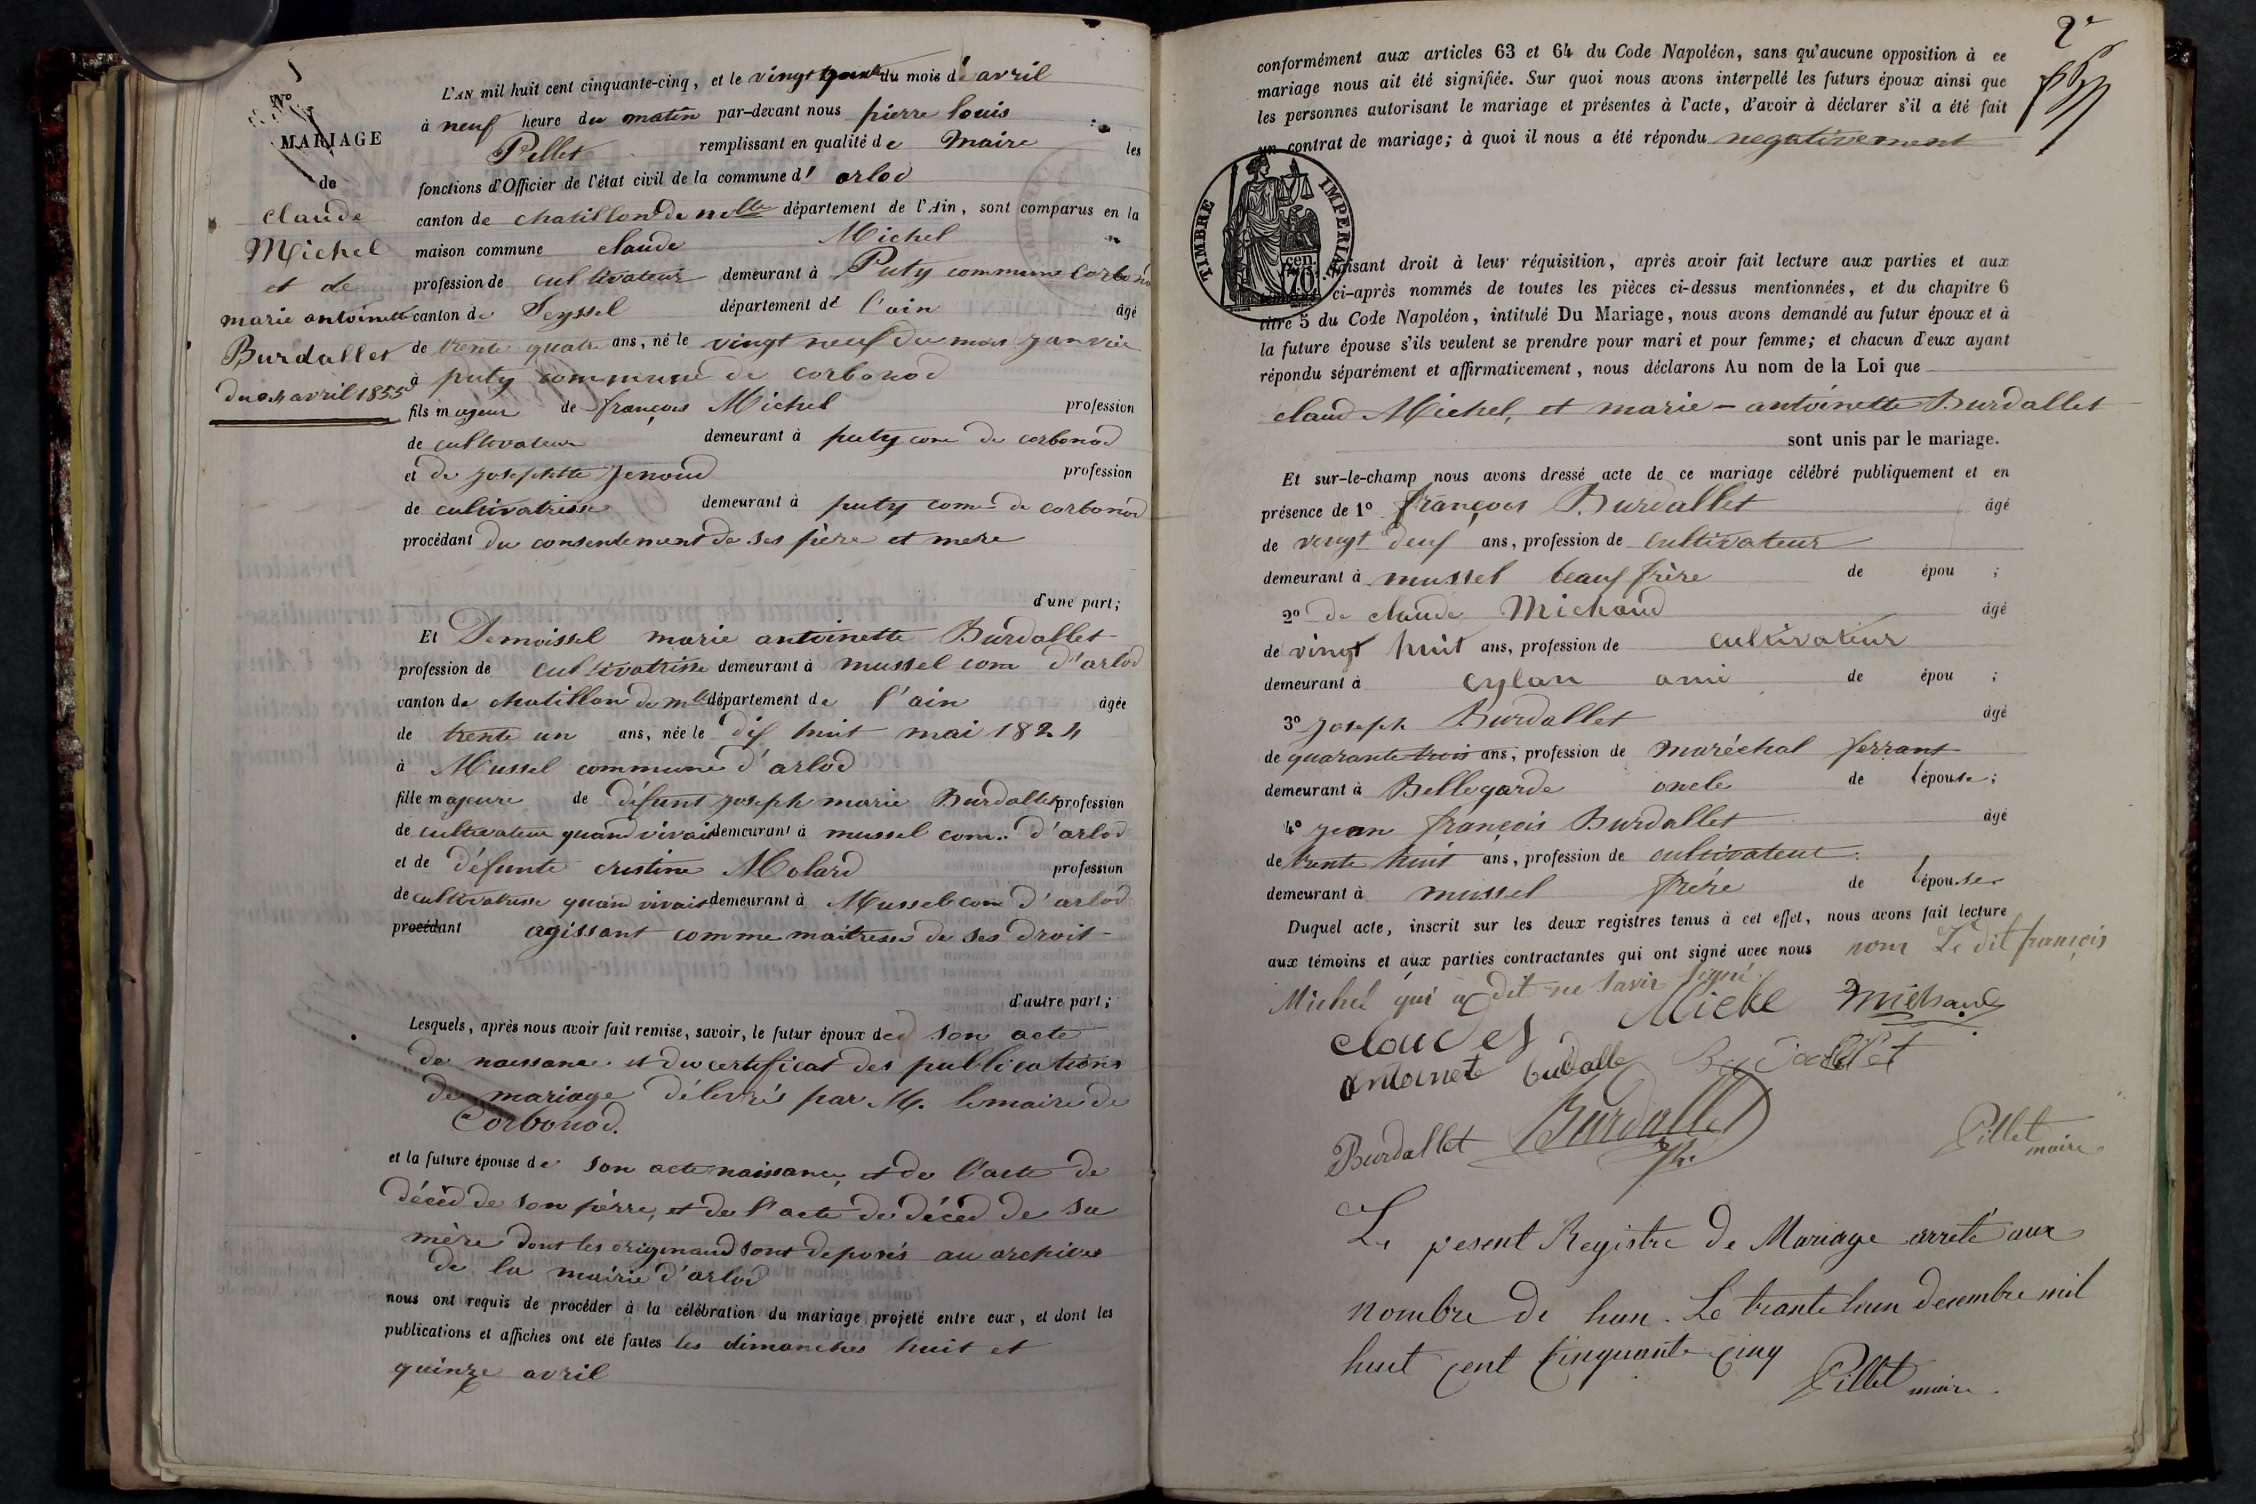 1
N°
MARIAGE
de
claude
Michel
et de
marie antoinette
Burdallet
du 24 avril 1855
L'AN mil huit cent cinquante-cinq, et le vingt quatre du mois d'avril
à neuf heure du matin par-devant nous pierre louis
Pillet remplissant en qualité de Maire les
fonctions d'Officier de l'état civil de la commune d' arlod
canton de chatillon de mlle département de l'Ain, sont comparus en la
maison commune claude Michel
profession de cultivateur demeurant à Puty commune Corbonod
canton de Seyssel département de l'ain âgé
de trente quatre ans, né le vingt neuf du mois janvier
à puty commune de corbonod
fils majeur de françois Michel profession
de cultivateur demeurant à puty com de corbonod
et de josephtte Jenoud profession
de cultivatrisse demeurant à puty com de corbonod
procédant du consentement de ses père et mere
d'une part;
Et Demoissel marie antoinette Burdallet
profession de cultivatrisse demeurant à mussel com d'arlod
canton de chatillon de mlle département de l'ain âgée
de trente un ans, née le dis huit mai 1824
à Mussel commune d'arlod
fille majeure de défunt joseph marie Burdallet profession
de cultivateur quand vivait demeurant à mussel com. d'arlod
et de défunte cristine Molard profession
de cultivatrisse quand vivait demeurant à Mussel com d'arlod
procédant agissant comme maitresse de ses droit
d'autre part;
Lesquels, après nous avoir fait remise, savoir, le futur époux de son acte
de naissance et du certificat des publications
de mariage délevrés par M. lemaire de
Corbonod.
et la future épouse de son acte naissance, et de l'acte de
décèd de son pèrre, et de l'acte de décèd de sa
mère dont les originaud sont deposés au archives
de la mairie d'arlod
nous ont requis de procéder à la célébration du mariage projeté entre eux, et dont les
publications et affiches ont été faites les dimanches huit et
quinze avril
2e
conformément aux articles 63 et 64 du Code Napoléon, sans qu'aucune opposition à ce
mariage nous ait été signifiée. Sur quoi nous avons interpellé les futurs époux ainsi que
les personnes autorisant le mariage et présentes à l'acte, d'avoir à déclarer s'il a été fait
un contrat de mariage; à quoi il nous a été répondu negativement
TIMBRE IMPERIAL
70 cen.
faisant droit à leur réquisition, après avoir fait lecture aux parties et aux
ci-après nommés de toutes les pièces ci-dessus mentionnées, et du chapitre 6
titre 5 du Code Napoléon, intitulé Du Mariage, nous avons demandé au futur époux et à
la future épouse s'ils veulent se prendre pour mari et pour femme; et chacun d'eux ayant
répondu séparément et affirmativement, nous déclarons Au nom de la Loi que
claud Michel, et marie-antoinette Burdallet
sont unis par le mariage.
Et sur-le-champ nous avons dressé acte de ce mariage célébré publiquement et en
présence de 1° françois Burdallet âgé
de vingt deuf ans, profession de cultivateur
demeurant à mussel beauf frère de épou ;
2° de claude Michaud âgé
de vingt huit ans, profession de cultivateur
demeurant à cylan ami de épou ;
3° joseph Burdallet âgé
de quarante trois ans, profession de maréchal ferrant
demeurant à Bellegarde oncle de l'épouse;
4° jean françois Burdallet âgé
de trente huit ans, profession de cultivateur
demeurant à mussel frère de l'épouse
Duquel acte, inscrit sur les deux registres tenus à cet effet, nous avons fait lecture
aux témoins et aux parties contractantes qui ont signé avec nous non Le dit françois
Michel qui a dit ne savir signé
claudes Michel Michaud
antoinete budalle Burdallet
Burdallet Burdallet
Pillet
maire
Le pesent Registre de Mariage arrêté aux
nombre de hun. Le trante hun decembre mil
huit cent cinquante cinq
Pillet maire